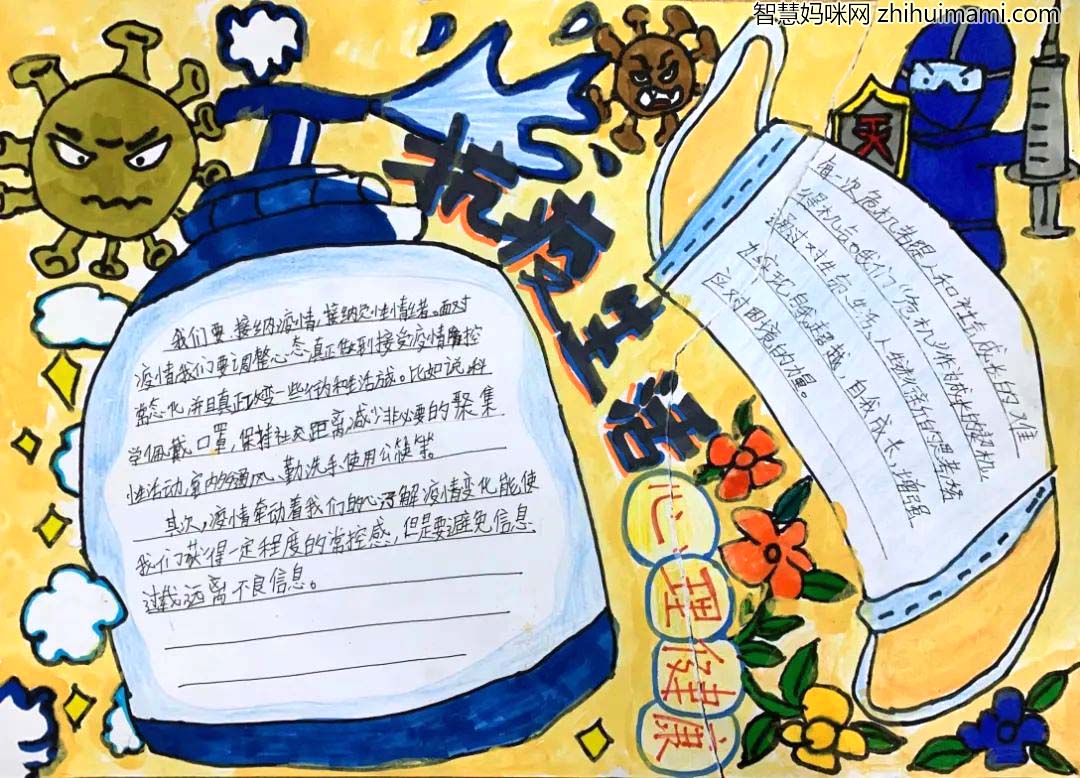 智慧妈咪网 zhihuimami.com
灭
抗疫生活
心理健康
我们要接纳疫情,接纳负性情绪。面对
疫情我们要调整心态,真正做到接受疫情防控
常态化,并且真正改变一些行为和生活方式。比如说,科
学佩戴口罩,保持社交距离,减少非必要的聚集
性活动,室内多通风、勤洗手、使用公筷等。
其次,疫情牵动着我们的心,了解疫情变化能使
我们获得一定程度的掌控感,但是要避免信息
过载,远离不良信息。
每一次危机都是人和社会成长的
机会。我们"危机"作为成长的契机,
通过对生命、生活、人与的思考
去实现自我超越,自我成长,增强
应对困境的力量。